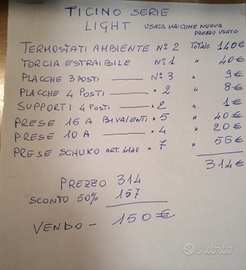 TICINO SERIE
LIGHT USATA MAI COME NUOVA
PREZZO USATO
TERMOSTATI AMBIENTE Nº 2 TOTALE 140€
TORCIA ESTRAIBILE Nº 1 " 40€
PLACCHE 3 POSTI — Nº 3 " 9€
PLACCHE 4 POSTI - 2 " 8€
SUPPORTI 4 POSTI - 2 " 1€
PRESE 16 A BIVALENTI • 5 " 40€
PRESE 10 A — • 4 " 20€
PRESE SCHUKO ART. 4140 • 7 " 56€
314€
PREZZO 314
SCONTO 50% 157
VENDO - 150€
subito